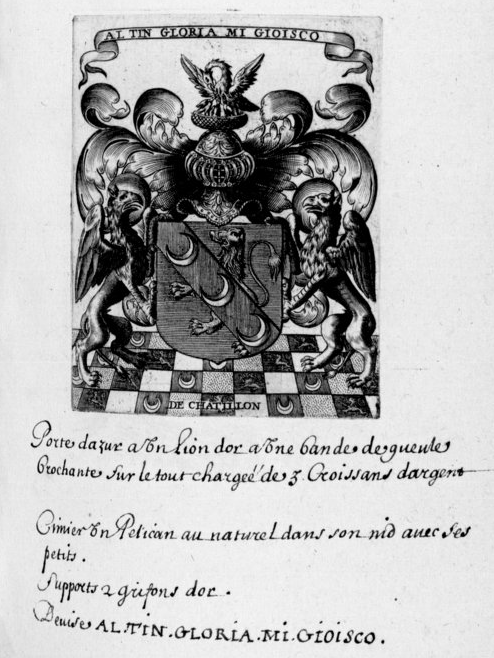 AL TIN GLORIA MI GIOISCO
DE CHATILLON
Porte dazur a Vn Lion dor a Vne bande de gueule
brochante sur le tout chargeé de 3 Croissans dargent
Cimier Vn Pelican au naturel dans son nid avec ses
petits.
Supports 2 grifons dor.
Devise AL.TIN.GLORIA.MI.GIOISCO.